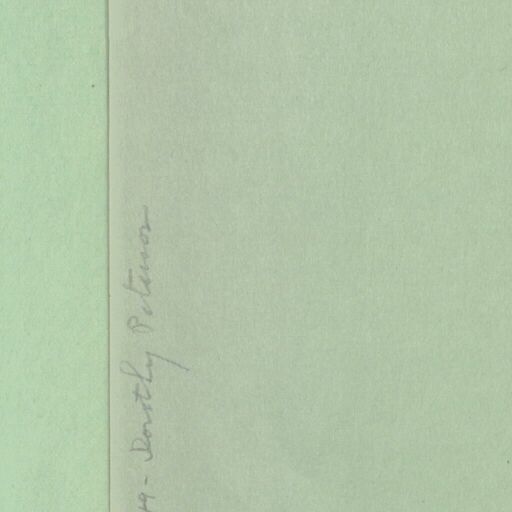 49 - Dorothy Peterson